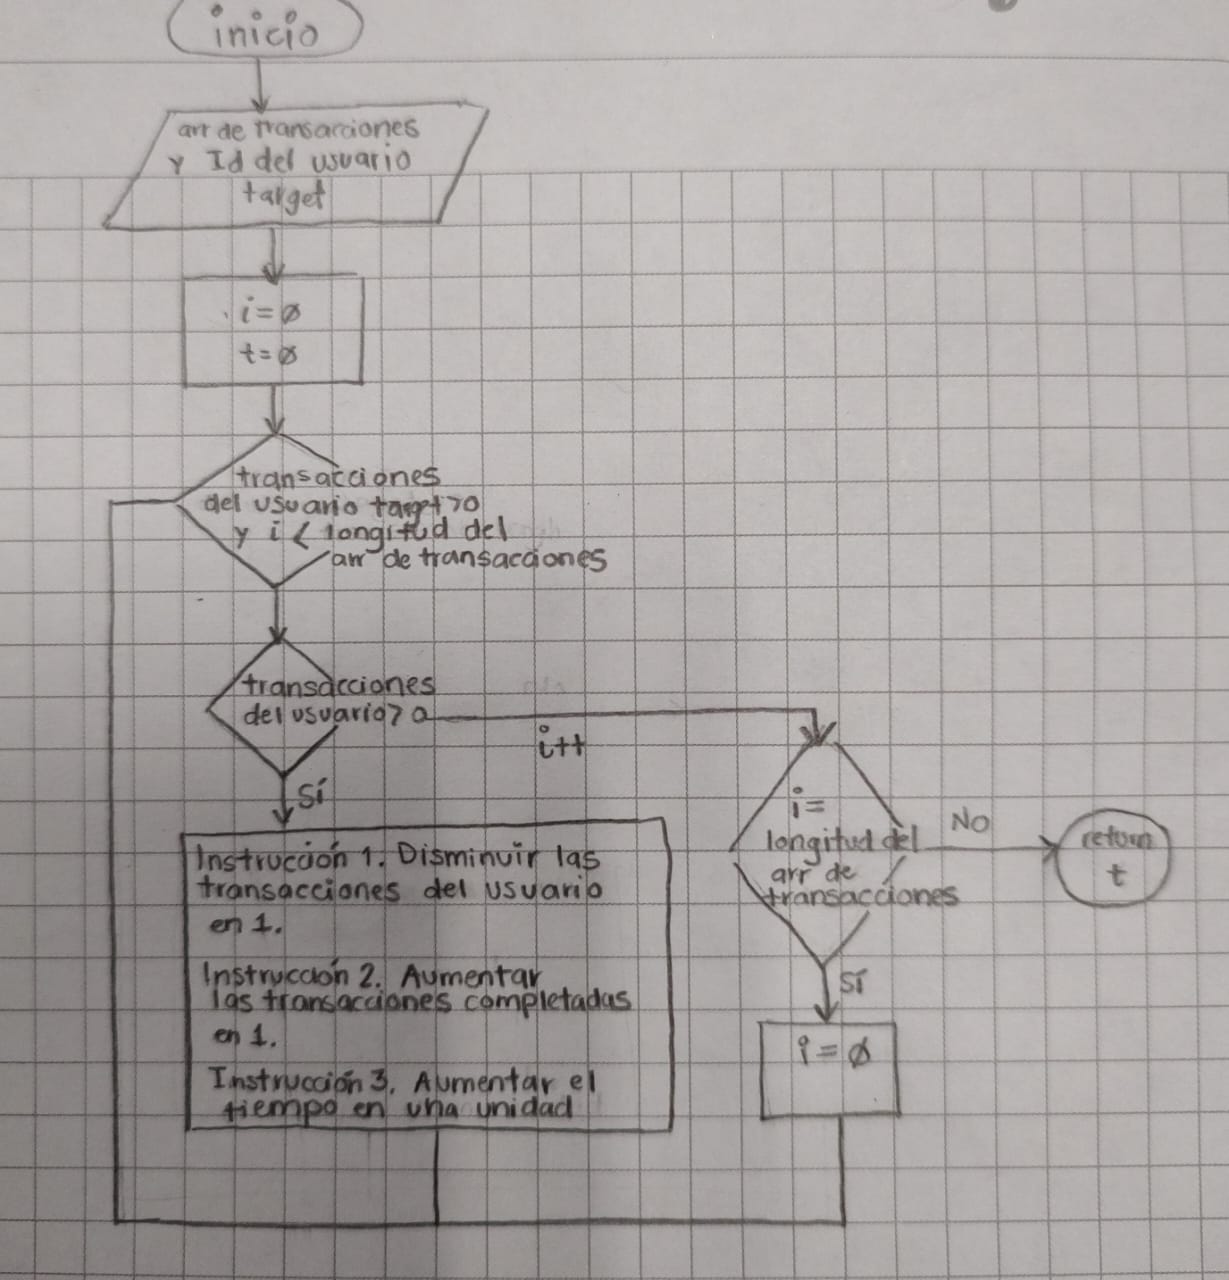 inicio
arr de transacciones
y Id del usuario
target
i=0
t=0
transacciones
del usuario target>0
y i < longitud del
arr de transacciones
transacciones
del usuario>0
i++
Sí
Instrucción 1. Disminuir las
transacciones del usuario
en 1.
Instrucción 2. Aumentar
las transacciones completadas
en 1.
Instrucción 3. Aumentar el
tiempo en una unidad
i=
longitud del
arr de
transacciones
No
return
t
Sí
i=0